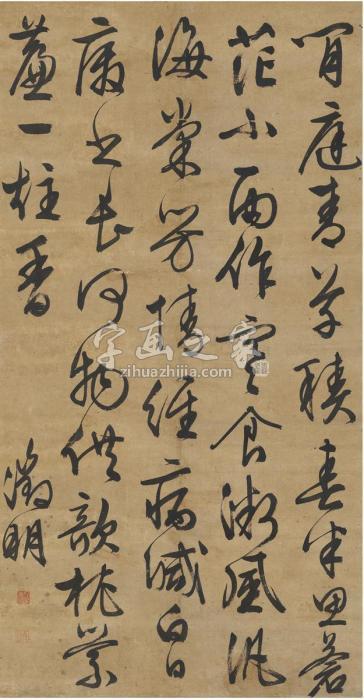 閒庭青草積春半思蒼
茫小雨作寒食微風汎
海棠芳情經病減白日
廢書長何物供欹枕縈
簾一柱香
徵明
字画之家
zihuazhijia.com